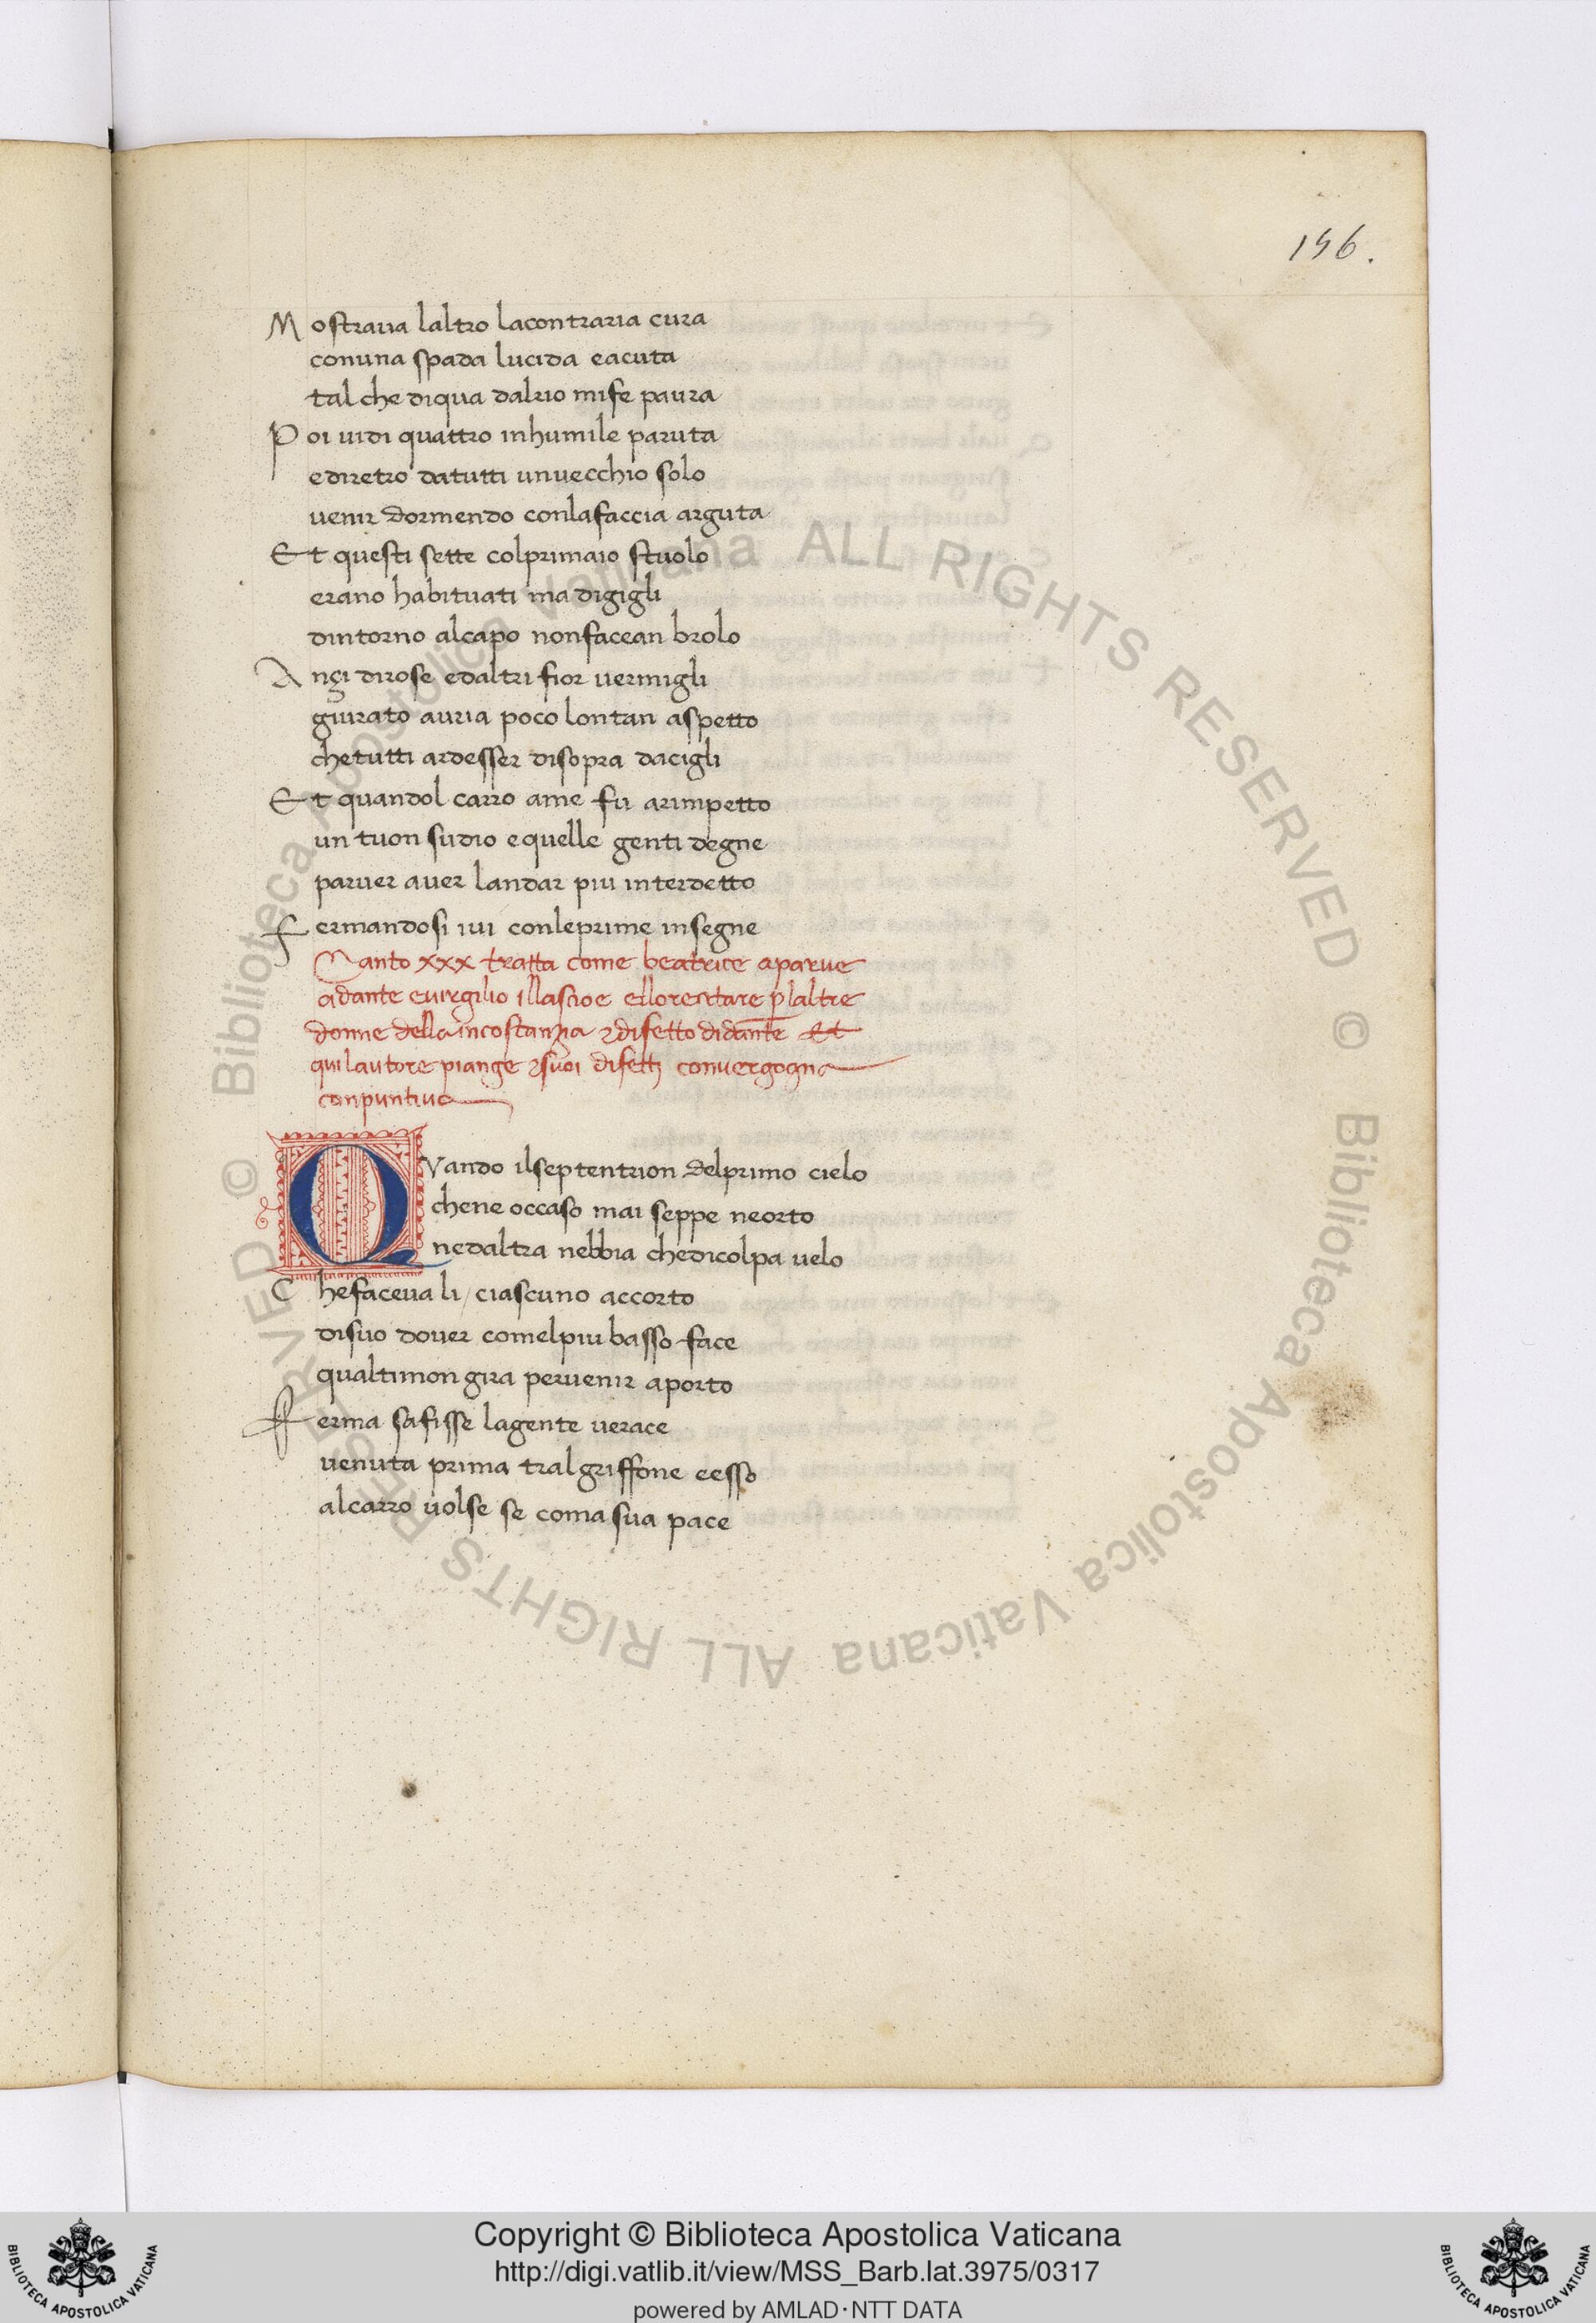 156.
Mostraua laltro lacontraria cura
conuna spada lucida eacuta
tal che diqua dalrio mife paura
Poi uidi quattro inhumile paruta
ediretro datutti unuecchio solo
uenir dormendo conlafaccia arguta
Et questi sette colprimaio stuolo
erano habituati ma digigli
dintorno alcapo nonfacean brolo
Ançi dirose edaltri fior uermigli
giurato auria poco lontan aspetto
chetutti ardesser disopra dacigli
Et quandol carro ame fu arimpetto
un tuon sudio equelle genti degne
paruer auer landar piu interdetto
Fermandosi iui conleprime insegne
Canto xxx tratta come beatrice aparue
adante euirgilio illascioe ellorecitare plaltre
donne della incostanza & difetto didante Et
qui lautore piange & suoi difetti conuergogna
conpuntiua
QVando ilseptentrion delprimo cielo
chene occaso mai seppe neorto
nedaltra nebbia chedicolpa uelo
Chefaceua li / ciascuno accorto
disuo douer comelpiu basso face
qualtimon gira peruenir aporto
Ferma safisse lagente uerace
uenuta prima tralgriffone eesso
alcarro uolse se coma sua pace
© Biblioteca Apostolica Vaticana ALL RIGHTS RESERVED © Biblioteca Apostolica Vaticana ALL RIGHTS RESERVED
Copyright © Biblioteca Apostolica Vaticana
http://digi.vatlib.it/view/MSS_Barb.lat.3975/0317
powered by AMLAD·NTT DATA
BIBLIOTECA APOSTOLICA VATICANA
BIBLIOTECA APOSTOLICA VATICANA